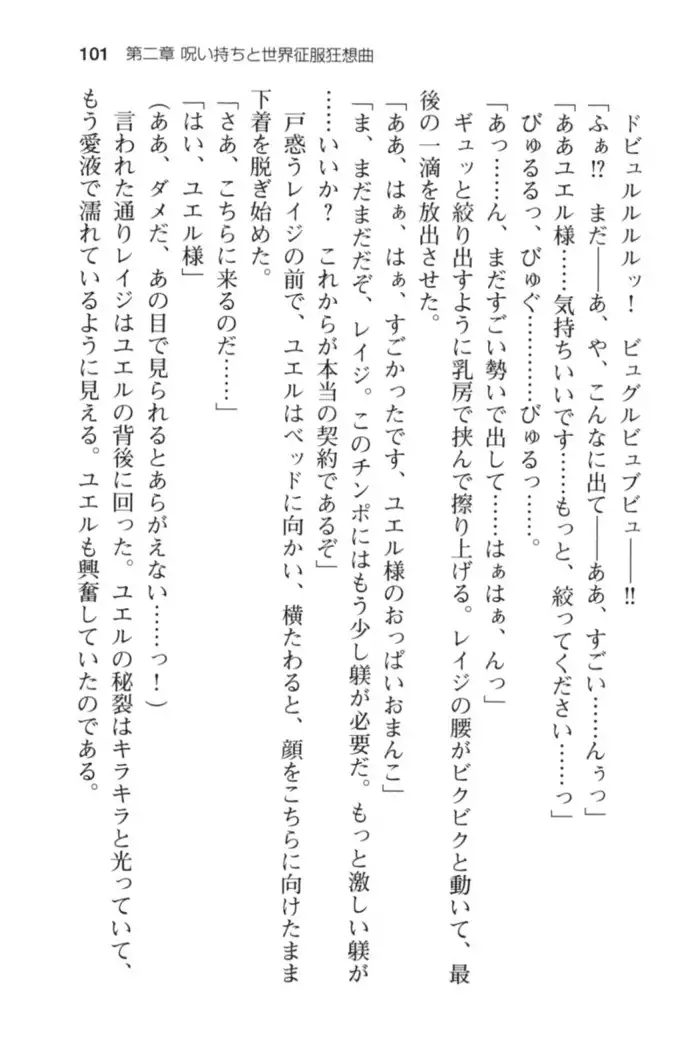 101 第二章 呪い持ちと世界征服狂想曲
ドビュルルルルッ！ ビュグルビュブビュ――!!
「ふぁ!? まだ――あ、や、こんなに出て――ああ、すごい……んぅっ」
「ああユエル様……気持ちいいです……もっと、絞ってください……っ」
びゅるるっ、びゅぐ…………びゅるっ……。
「あっ……ん、まだすごい勢いで出して……はぁはぁ、んっ」
ギュッと絞り出すように乳房で挟んで擦り上げる。レイジの腰がビクビクと動いて、最
後の一滴を放出させた。
「ああ、はぁ、はぁ、すごかったです、ユエル様のおっぱいおまんこ」
「ま、まだまだだぞ、レイジ。このチンポにはもう少し躾が必要だ。もっと激しい躾が
……いいか？ これからが本当の契約であるぞ」
戸惑うレイジの前で、ユエルはベッドに向かい、横たわると、顔をこちらに向けたまま
下着を脱ぎ始めた。
「さあ、こちらに来るのだ……」
「はい、ユエル様」
（ああ、ダメだ、あの目で見られるとあらがえない……っ！）
言われた通りレイジはユエルの背後に回った。ユエルの秘裂はキラキラと光っていて、
もう愛液で濡れているように見える。ユエルも興奮していたのである。